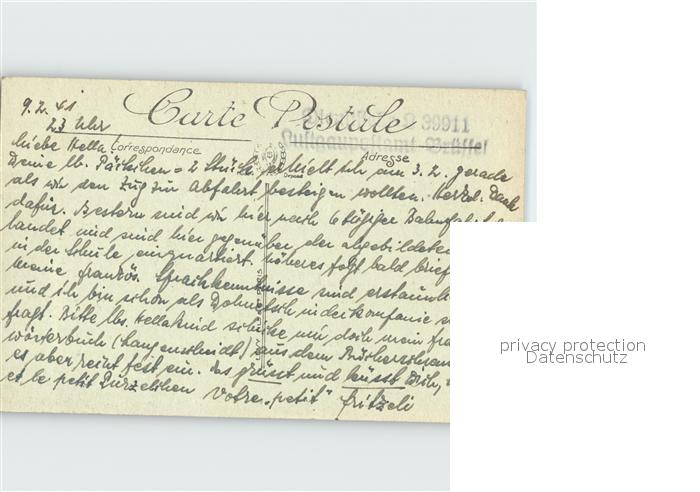 9.2.41
23 Uhr
Carte Postale
39911
Luftgaupostamt Brüssel
Correspondance
Adresse
Liebe Hella!
Deine lb. Päckchen = 2 Stück erhielt ich am 3.2. gerade
als wir den Zug zur Abfahrt besteigen wollten. Herzl. Dank
dafür. Gestern sind wir hier nach 6 tägiger Bahnfahrt
landet und sind hier gegenüber der abgebildeten
in der Schule einquartiert. Näheres folgt bald brief
Meine französ. Sprachkenntnisse sind erstaunlich
und ich bin schon als Dolmetsch in der Kompanie
fragt. Bitte lbs. Hellakind schicke mir doch mein
wörterbuch (Langenscheidt) aus dem Bücherschrank
es aber recht fest ein. Es grüsst und küsst Dich,
et le petit Purzelchen Votre "petit" Fritzeli
privacy protection
Datenschutz